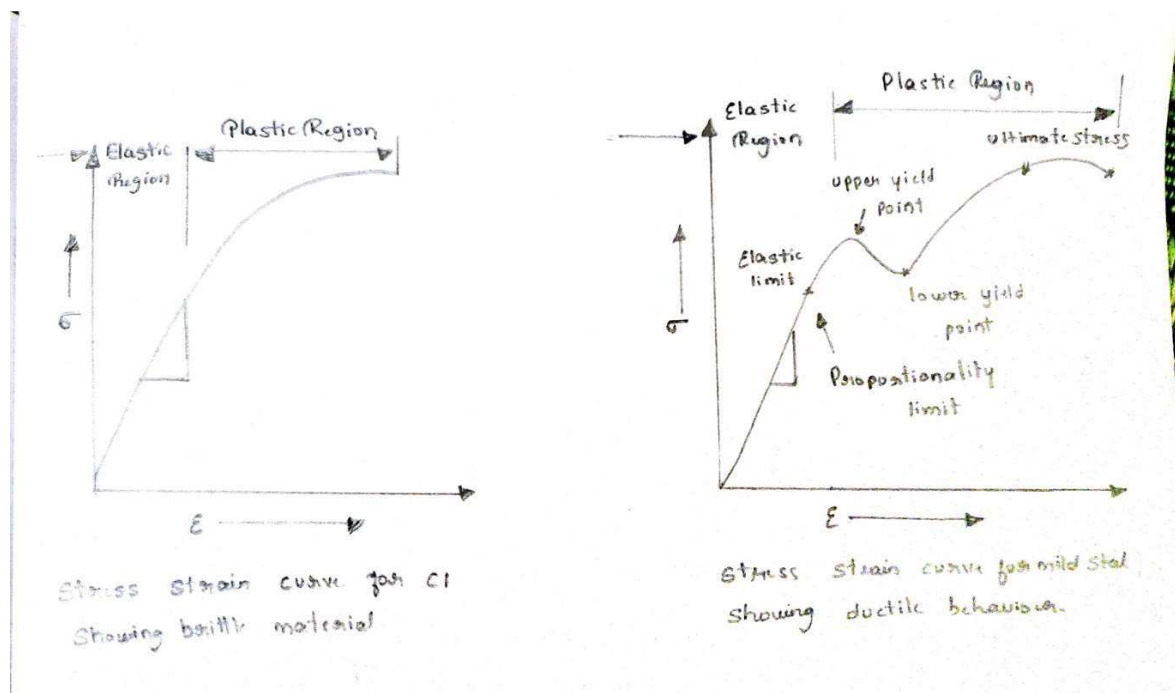 Plastic Region
Elastic
Region
σ
ε
Stress strain curve for CI
Showing brittle material
Plastic Region
Elastic
Region
ultimate stress
upper yield
point
Elastic
limit
lower yield
point
σ
Proportionality
limit
ε
Stress strain curve for mild Steel
Showing ductile behaviour.